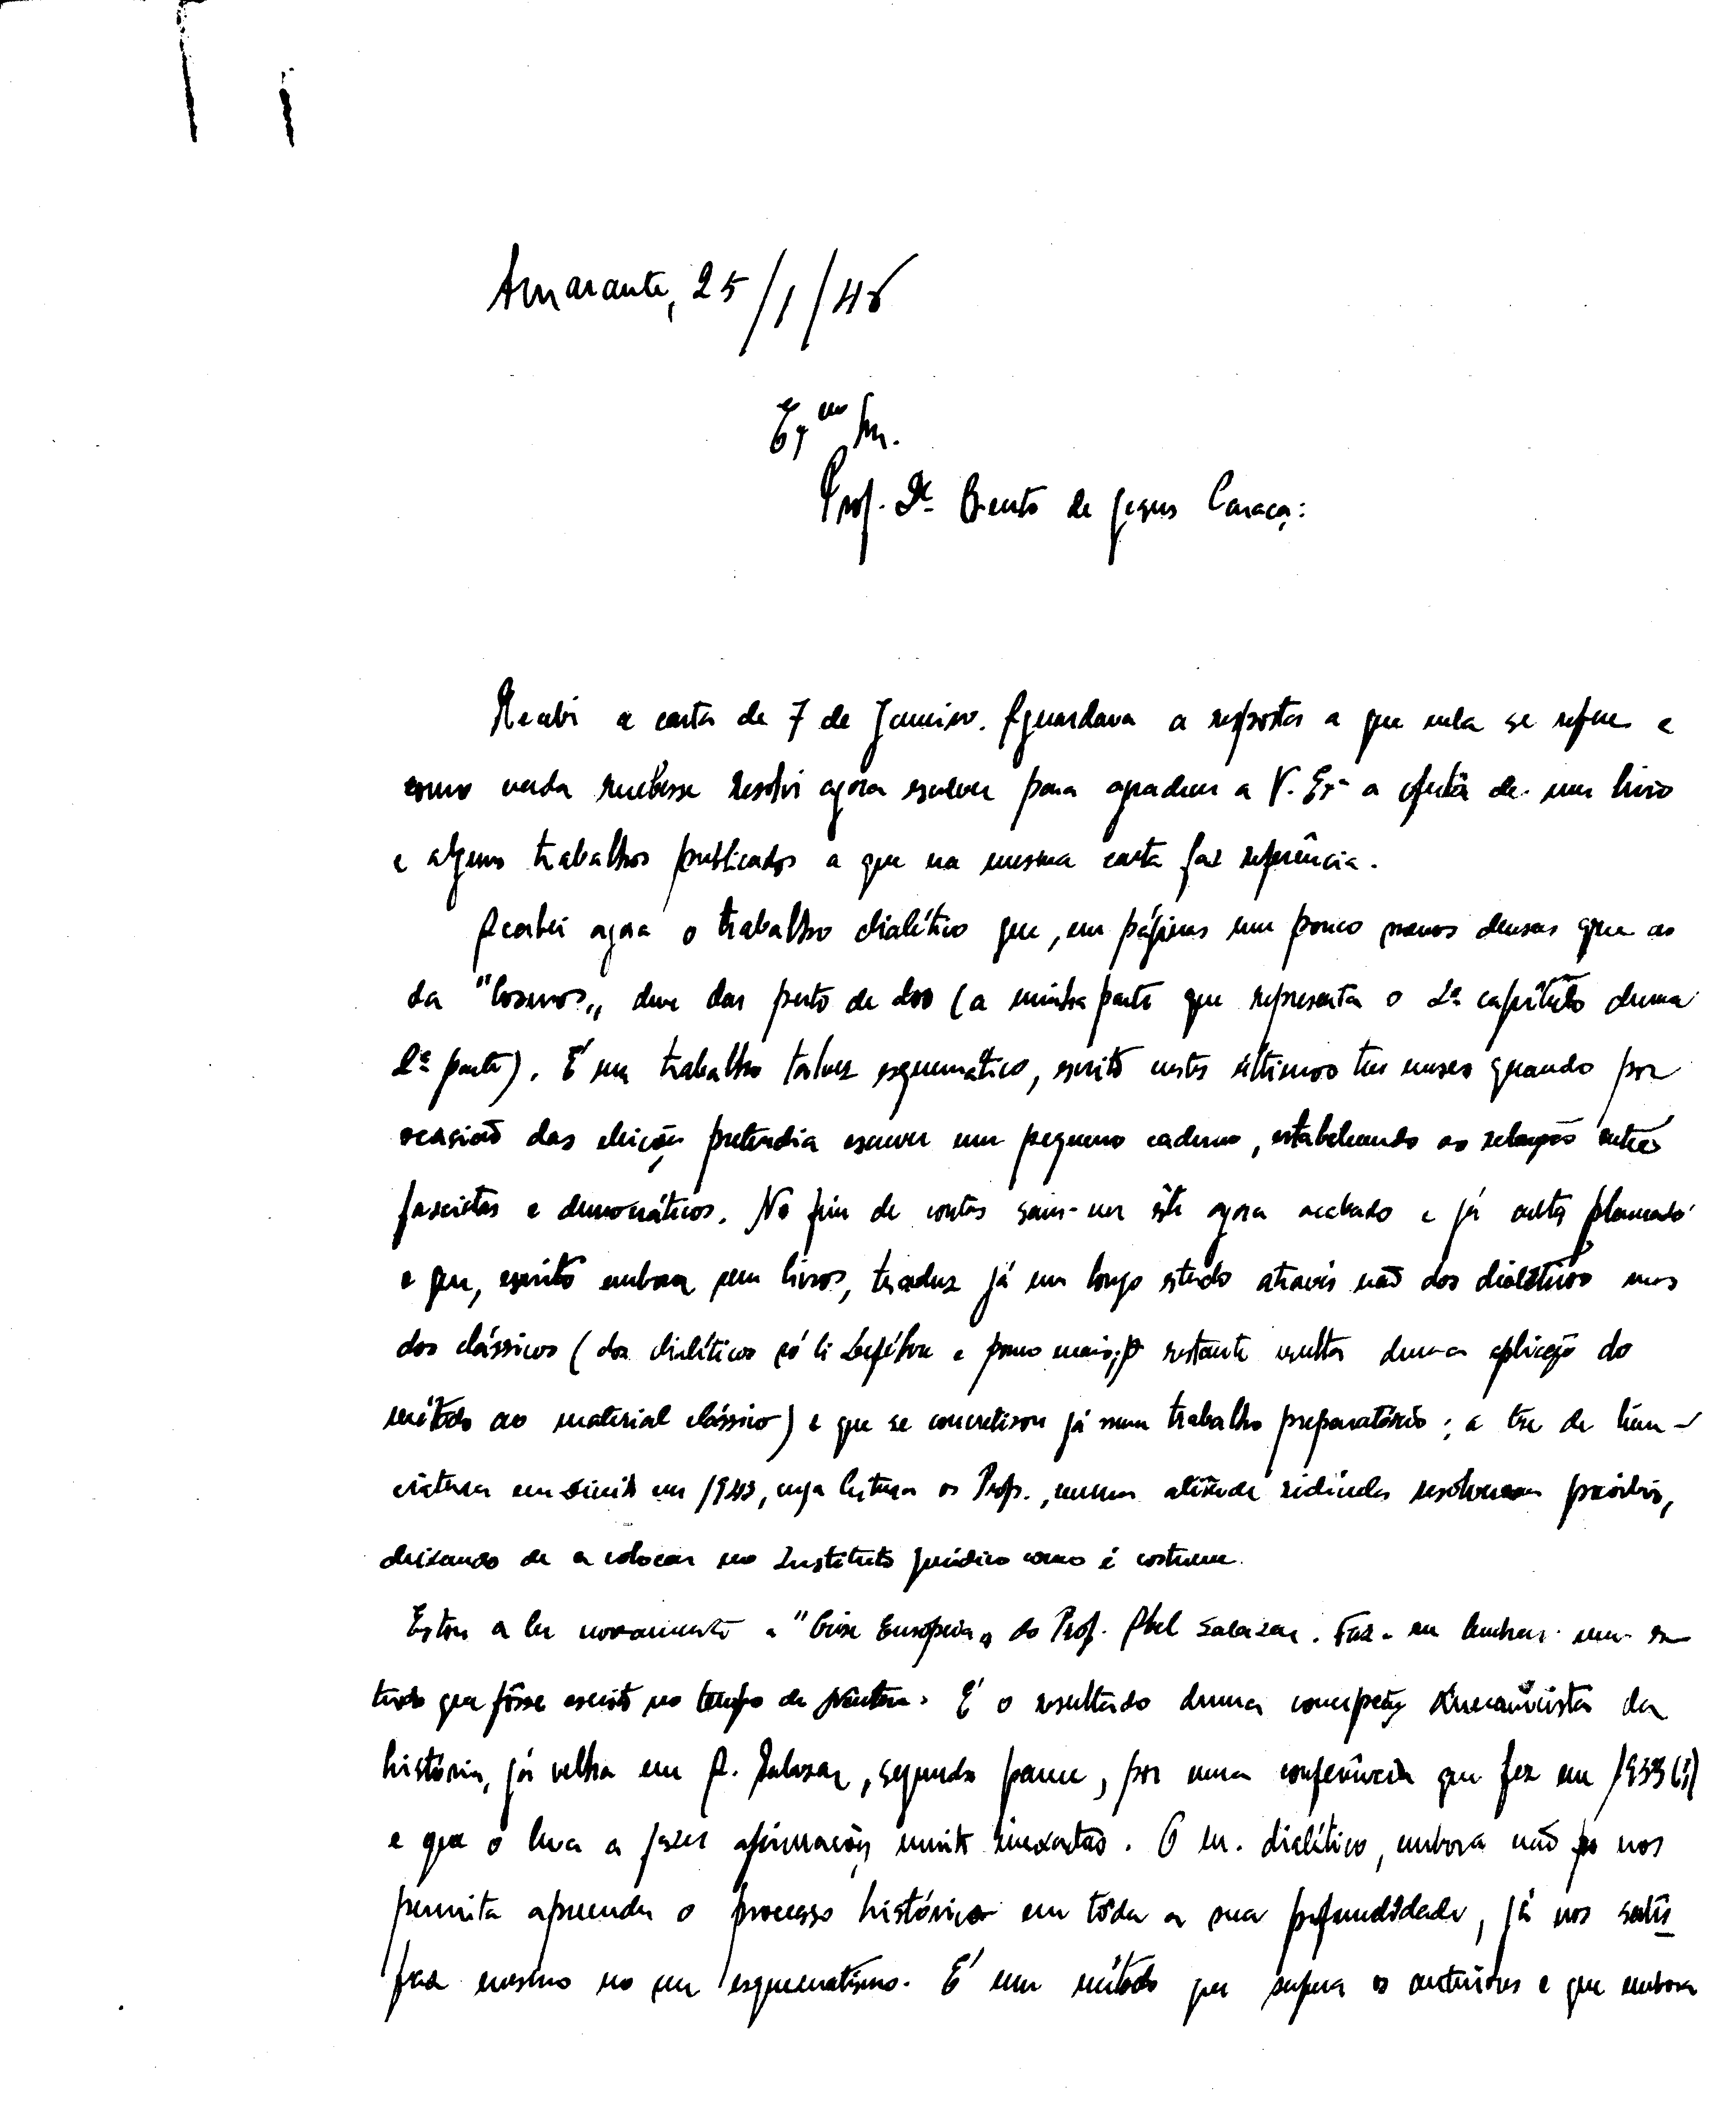 Amarante, 25/1/46
Exmo Sr.
Prof. Dr. Bento de Jesus Caraça:
Recebi a carta de 7 de Janeiro. Aguardava a resposta a que nela se refere e
como nada recebesse resolvi agora escrever para agradecer a V. Exª a oferta de um livro
e alguns trabalhos publicados a que na mesma carta faz referência.
Acabei agora o trabalho dialético que, em páginas um pouco menos densas que as
da "Cosmos", deve dar perto de 200 (a minha parte que representa o 2º capítulo duma
2ª parte). É um trabalho talvez esquemático, escrito nestes últimos três meses quando por
ocasião das eleições pretendia escrever um pequeno caderno, estabelecendo as relações entre
fascistas e democráticos. No fim de contas saiu-me êste agora acabado e já planeado
e que, escrito embora sem livros, traduz já um longo estudo através não dos dialéticos mas
dos clássicos (dos dialéticos só li Lefébvre e pouco mais; o restante resulta duma aplicação do
método ao material clássico) e que se concretisou já num trabalho preparatório: a tese de licen-
ciatura em Direito em 1943, cuja leitura os Prof., numa atitude ridícula resolveram proibir,
deixando de a colocar no Instituto Jurídico como é costume.
Estou a ler novamente a "Crise Europeia" do Prof. Abel Salazar. Faz-me lembrar um es-
tudo que fôsse escrito no tempo de Newton. É o resultado duma concepção mecanicista da
história, já velha em A. Salazar, segundo parece, por uma conferência que fez em 1933(?)
e que o leva a fazer afirmações muito inexactas. O m. dialético, embora não nos
permita apreender o processo histórico em tôda a sua profundidade, já nos satis-
faz mesmo no seu esquematismo. É um método que supera os anteriores e que embora